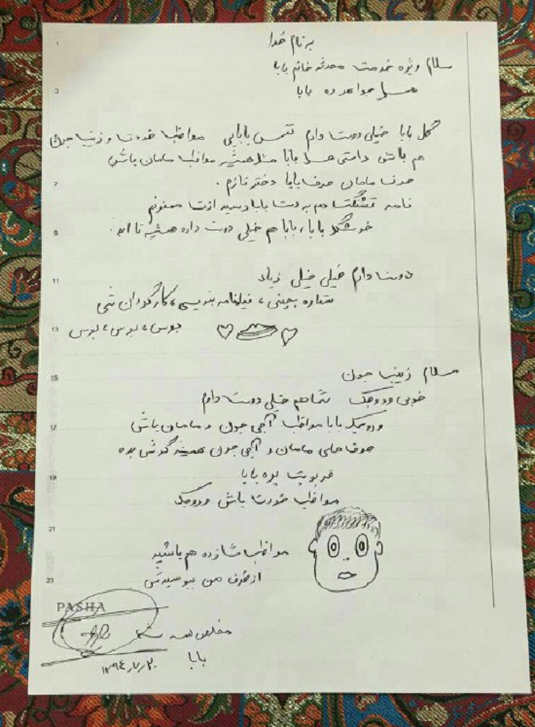 به نام خدا
سلام ویژه خدمت محدثه خانم بابا
عسل خانواده بابا
گل بابا خیلی دوست دارم نفس بابایی مواظب خودت و زینب جون
هم باش دامنی عسل بابا مثل همیشه مواظب مامان باش
حرف مامان حرف بابا دختر نازم.
نامه قشنگت هم به دست بابا رسید ازت ممنونم
خوشگل بابا، بابا هم خیلی دوست داره همیشه تا ابد.
دوست دارم خیلی خیلی زیاد
ستاره بچینی، فیلمنامه بنویسی، کارگردان شی
بوس، بوس، بوس
سلام زینب جون
خوبی وروجک شما هم خیلی دوست دارم
وروجک بابا مواظب آجی جون و مامان باش
حرف های مامان و آجی جون همیشه گوش بده
قربونت بره بابا
مواظب خودت باش وروجک
مواظب شازده هم باشید
از طرف من ببوسیدش
PASHA
مخلص همه شما
بابا
1
3
7
9
11
13
15
17
19
21
23